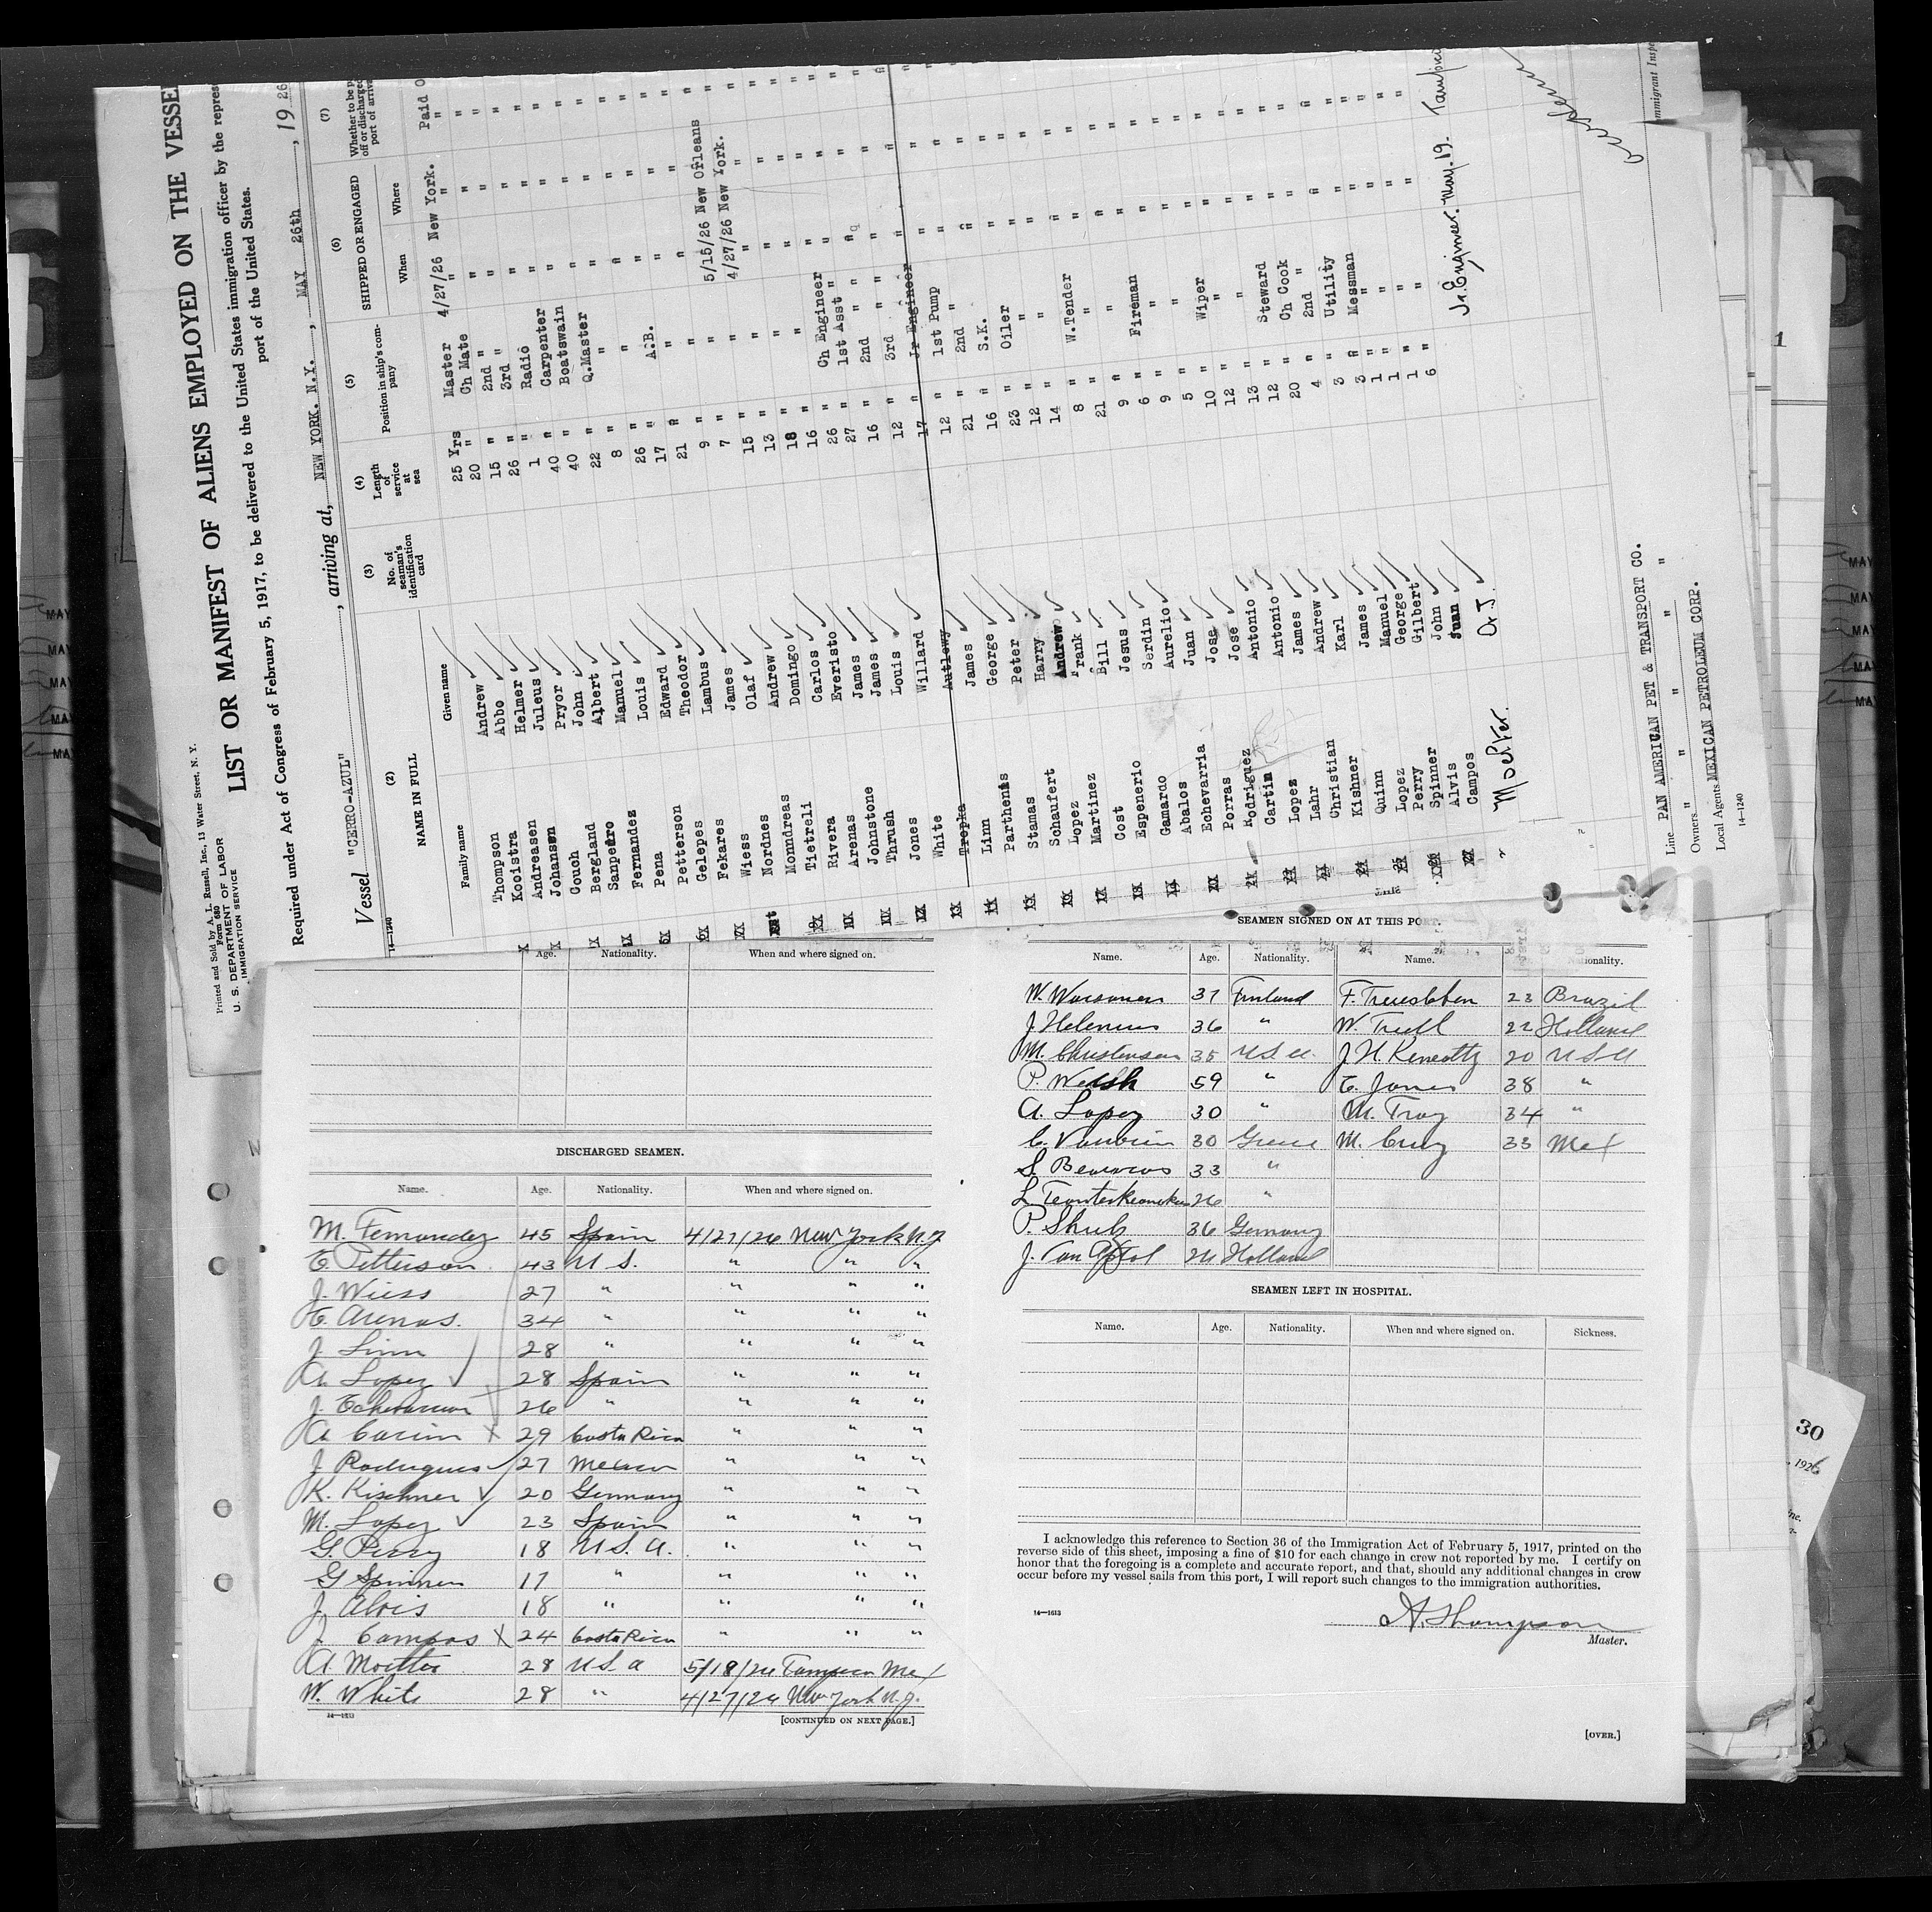 Printed and Sold by A. L. Russell, Inc., 13 Water Street, N. Y.
Form 680
U. S. DEPARTMENT OF LABOR
IMMIGRATION SERVICE
LIST OR MANIFEST OF ALIENS EMPLOYED ON THE VESSEL
Required under Act of Congress of February 5, 1917, to be delivered to the United States immigration officer by the
port of the United States.
Vessel "CERRO-AZUL", arriving at, NEW YORK. N.Y., MAY 26th, 1926
14—1240
(2) (3) (4) (5) (6) (7)
NAME IN FULL
Family name Given name
No. of seaman's identification card
Length of service at sea
Position in ship's company
SHIPPED OR ENGAGED
When Where
Whether to be
off or discharged
port of
Thompson Andrew 25 Yrs Master 4/27/26 New York. Paid
Kooistra Abbo 20 " Ch Mate " " "
Andreasen Helmer 15 " 2nd " " " "
Johansen Juleus 26 " 3rd " " " "
Couch Pryor 1 " Radio " " "
Bergland John 40 " Carpenter " " "
Sanpedro Albert 40 " Boatswain " " "
Fernandez Manuel 22 " Q.Master " " "
Pena Louis 8 " " " " "
Petterson Edward 26 " " " " "
Gelepes Theodor 17 " A.B. " " "
Fekares Lambus 21 " " " " "
Wiess James 9 " " 5/15/26 New Orleans "
Nordnes Olaf 7 " " 4/27/26 New York. "
Monndreas Andrew 15 " " " " "
Tietreli Domingo 13 " " " " "
Rivera Carlos 18 " " " " "
Arenas Everisto 16 " " " " "
Johnstone James 26 " Ch Engineer " " "
Thrush James 27 " 1st Asst " " " "
Jones Louis 16 " 2nd " " " "
White Willard 12 " 3rd " " " "
Tropka 17 " Jr Engineer " " "
Linn James 12 " 1st Pump " "
Parthenis George 21 " 2nd " " "
Stamas Peter 16 " S.K. " "
Schaufert Harry 23 " Oiler " "
Lopez Andrew 12 " " " "
Martinez Frank 14 " " " "
Cost Bill 8 " W.Tender " "
Espenerio Jesus 21 " " " "
Gamardo Serdin 9 " " " "
Abalos Aurelio 6 " Fireman " "
Echevarria Juan 9 " " " "
Porras Jose 5 " " " "
Rodriguez Jose 10 " Wiper " "
Cartin Antonio 12 " " " "
Lopez Antonio 13 " " " "
Lahr James 12 " Steward " "
Christian Andrew 20 " Ch Cook " "
Kishner Karl 4 " 2nd " " "
Quinn James 3 " Utility " "
Lopez Manuel 3 " Messman " "
Perry George 1 " " " "
Spinner Gilbert 1 " " " "
Alvis John 1 " " " "
Campos Juan 6 " " " "
Moelter. A.J. Jr. Engineer. May. 19. Tampico
Line PAN AMERICAN PET & TRANSPORT CO.
Owners " " " " "
Local Agents MEXICAN PETROLEUM CORP.
14—1240
Age. Nationality. When and where signed on.
DISCHARGED SEAMEN.
Name. Age. Nationality. When and where signed on.
M. Fernandez 45 Spain 4/27/26 New York N.Y
E. Petterson 43 U S. " " "
J. Wiess 27 " " " "
E. Arenas. 34 " " " "
J. Linn 28 " " " "
A. Lopez 28 Spain " " "
J. Echevarria 26 " " " "
A. Carin 29 Costa Rica " " "
J. Rodrigues 27 Mexico " " "
K. Kischner 20 Germany " " "
M. Lopez 23 Spain " " "
G. Perry 18 U S. A. " " "
G Spinner 17 " " " "
J. Alvis 18 " " " "
J. Campos 24 Costa Rica " " "
A. Moelter 28 U S. A 5/18/26 Tampico Mex
W. White 28 " 4/27/26 New York N.Y.
14—1613
[CONTINUED ON NEXT PAGE.]
SEAMEN SIGNED ON AT THIS PORT.
Name. Age. Nationality. Name. Nationality.
W. 37 Finland F. 23 Brazil
J. Helenius 36 " W. Truell 22 Holland
M. Christensen 35 U.S.A. J. H. 20 U S A
P. Welsh 59 " E. Jones 38 "
A. Lopez 30 " M. Troy 34 "
C. 30 Greece M. Cruz 33 Mex
S. 33 "
L. 26 "
P. Shulz 36 Germany
J. Van 24 Holland
SEAMEN LEFT IN HOSPITAL.
Name. Age. Nationality. When and where signed on. Sickness.
I acknowledge this reference to Section 36 of the Immigration Act of February 5, 1917, printed on the
reverse side of this sheet, imposing a fine of $10 for each change in crew not reported by me. I certify on
honor that the foregoing is a complete and accurate report, and that, should any additional changes in crew
occur before my vessel sails from this port, I will report such changes to the immigration authorities.
14—1613
A. Thompson
Master.
[OVER.]
30
, 1926